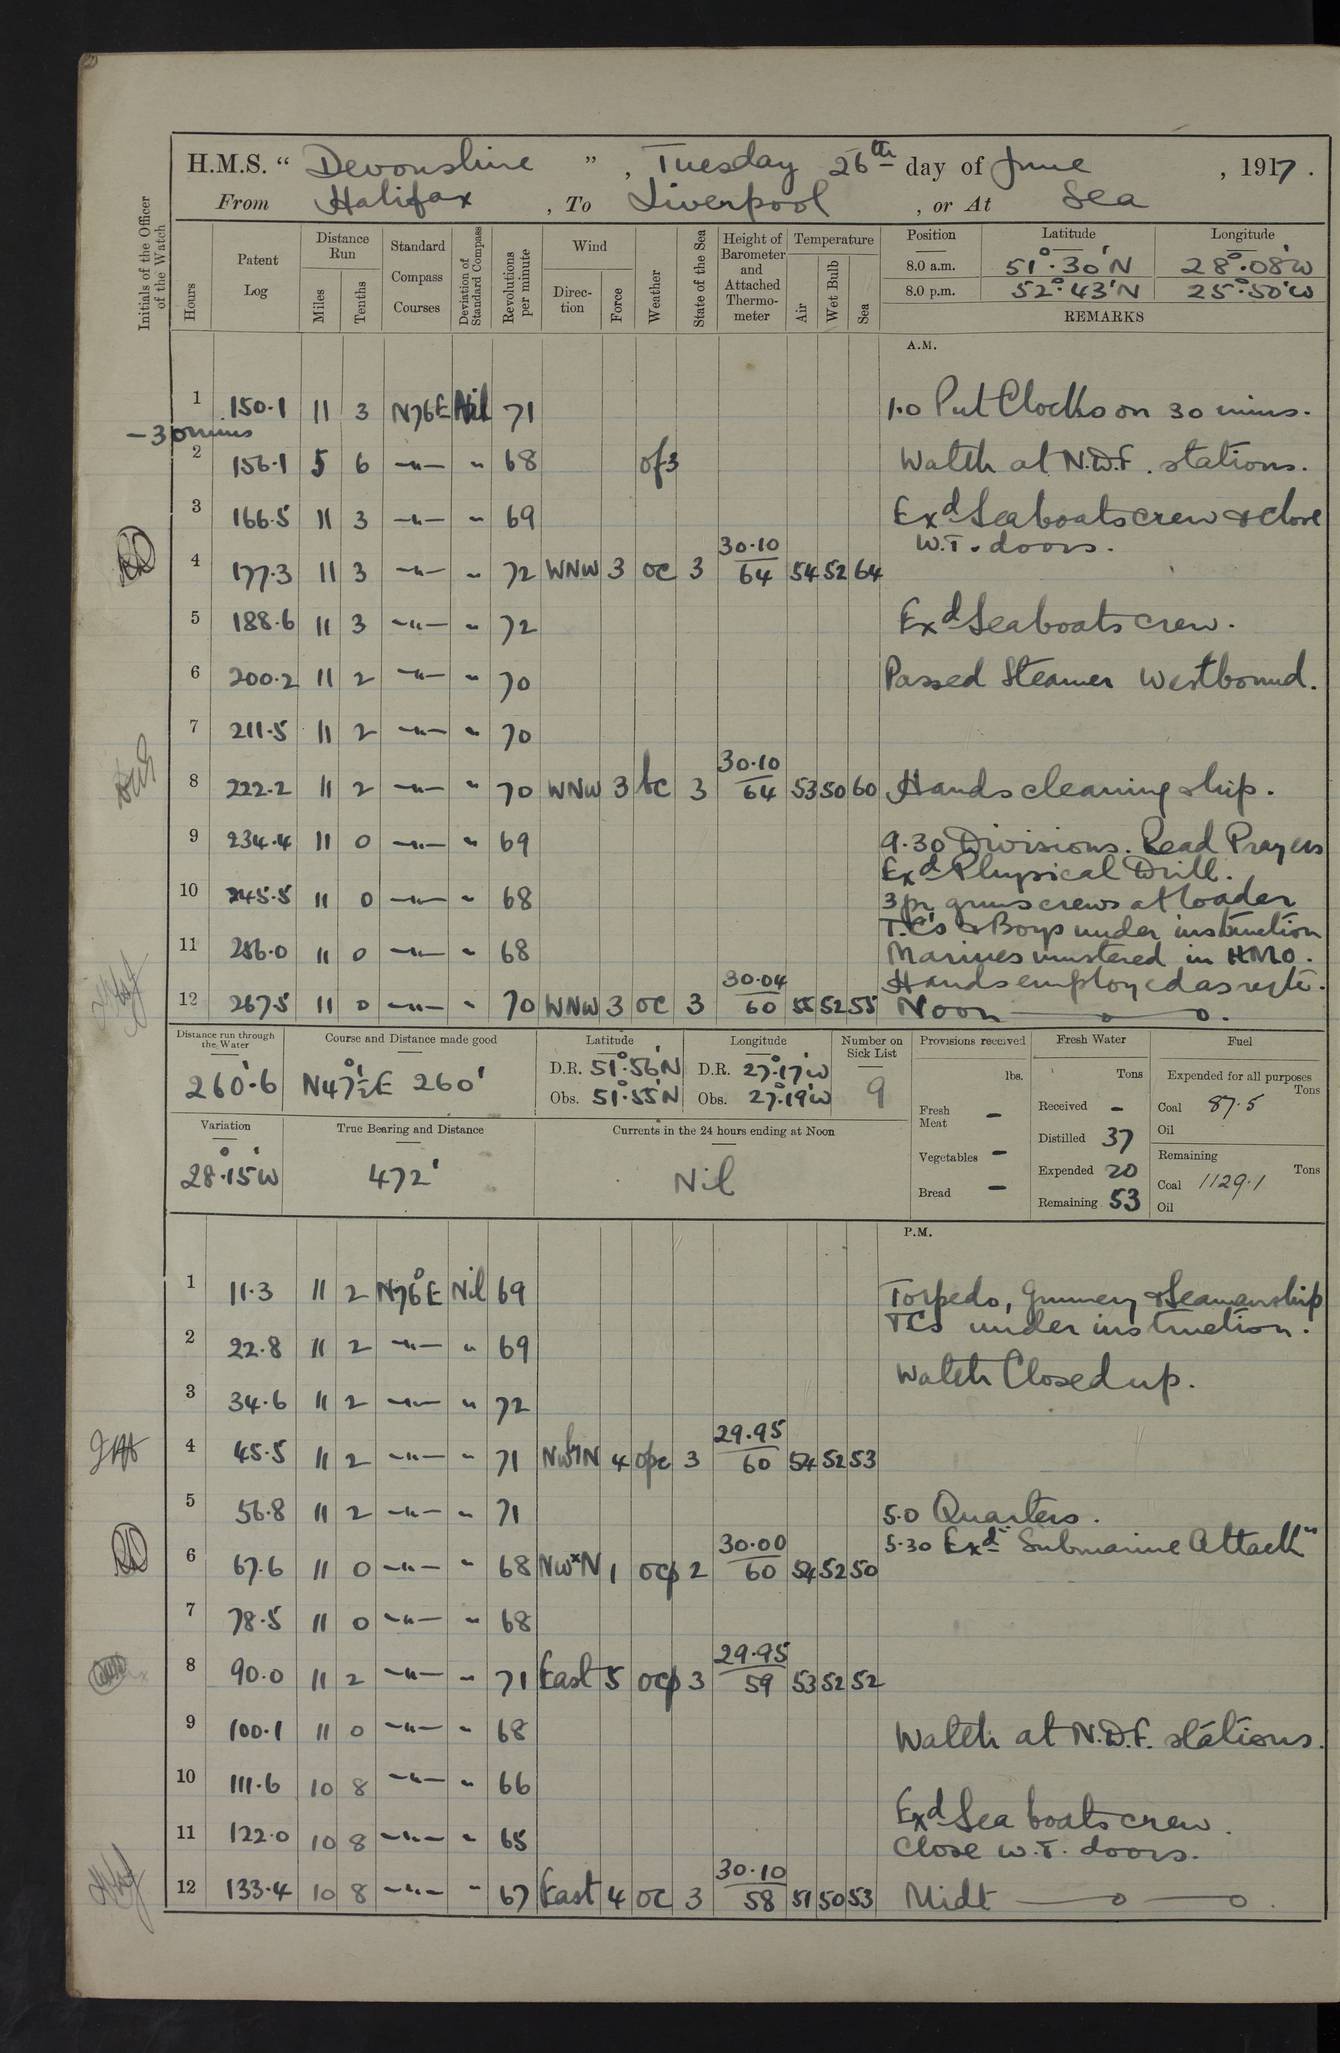 H.M.S. “ Devonshire ” , Tuesday 26th day of June , 1917.
From Halifax , To Liverpool , or At Sea
Initials of the Officer of the Watch
Hours
Patent Log
Distance Run
Miles
Tenths
Standard Compass Courses
Deviation of Standard Compass
Revolutions per minute
Wind
Direction
Force
Weather
State of the Sea
Height of Barometer and Attached Thermometer
Temperature
Air
Wet Bulb
Sea
Position Latitude Longitude
8.0 a.m. 51°.30'N 28°.08'W
8.0 p.m. 52°.43'N 25°.50'W
REMARKS
A.M.
1 150.1 11 3 N76E Nil 71 1.0 Put Clocks on 30 mins.
-30 mins
2 156.1 5 6 -"- " 68 of3 Watch at N.D.F. stations.
3 166.5 11 3 -"- " 69 Exd Seaboats crew & close
W.T. doors.
4 177.3 11 3 -"- " 72 WNW 3 oc 3 30.10 64 54 52 64
5 188.6 11 3 -"- " 72 Exd Seaboats crew.
6 200.2 11 2 -"- " 70 Passed Steamer Westbound.
7 211.5 11 2 -"- " 70
8 222.2 11 2 -"- " 70 WNW 3 bc 3 30.10 64 53 50 60 Hands cleaning ship.
9 234.4 11 0 -"- " 69 9.30 Divisions. Read Prayers
Exd Physical Drill.
10 245.5 11 0 -"- " 68 3 pr guns crews at loader
T.C's & Boys under instruction
11 256.0 11 0 -"- " 68 Marines mustered in HMO.
Hands employed as reqte.
12 267.5 11 0 -"- " 70 WNW 3 oc 3 30.04 60 55 52 55 Noon
Distance run through the Water
260'.6
Course and Distance made good
N47½°E 260'
Latitude
D.R. 51°.56'N
Obs. 51°.55'N
Longitude
D.R. 27°.17'W
Obs. 27°.19'W
Number on Sick List
9
Provisions received
lbs.
Fresh Meat -
Vegetables -
Bread -
Fresh Water
Tons
Received -
Distilled 37
Expended 20
Remaining 53
Fuel
Expended for all purposes
Tons
Coal 87.5
Oil
Remaining
Tons
Coal 1129.1
Oil
Variation
28°.15'W
True Bearing and Distance
472'
Currents in the 24 hours ending at Noon
Nil
P.M.
1 11.3 11 2 N76°E Nil 69 Torpedo, Gunnery & Seamanship
T.Cs under instruction.
2 22.8 11 2 -"- " 69
Watch Closed up.
3 34.6 11 2 -"- " 72
4 45.5 11 2 -"- " 71 NWbyN 4 opc 3 29.95 60 54 52 53
5 56.8 11 2 -"- " 71 5.0 Quarters.
5.30 Exd "Submarine Attack"
6 67.6 11 0 -"- " 68 NWxN 1 ocp 2 30.00 60 54 52 50
7 78.5 11 0 -"- " 68
8 90.0 11 2 -"- " 71 East 5 ocp 3 29.95 59 53 52 52
9 100.1 11 0 -"- " 68 Watch at N.D.F. stations.
10 111.6 10 8 -"- " 66
Exd Sea boats crew.
11 122.0 10 8 -"- " 65 Close W.T. doors.
12 133.4 10 8 -"- " 67 East 4 oc 3 30.10 58 51 50 53 Midt